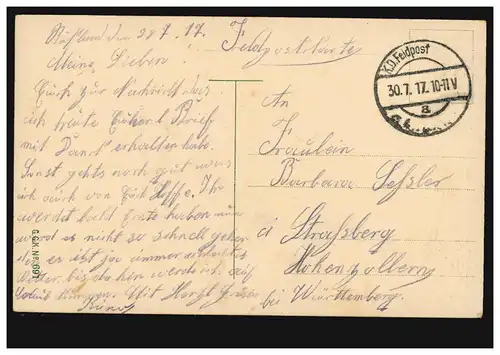 Rußland den 28 7. 17.
Feldpostkarte
Meine Lieben!
Euch zur Nachricht das
ich heute Euhern Brief
mit Dank erhalten habe.
Sonst gehts noch gut was
ich auch von Euch hoffe. Ihr
werdet bald Ernte haben nun
wird es nicht so schnell gehen
den es ist ja immer
Wetter, bis da hin werde ich auf
Urlaub kommen. Mit Herzl Grüßen
G.G.K. NR. 691
K.D. Feldpost
30.7.17. 10-11 V
a
An
Fräulein
Barbara Sessler
Strassberg
Hohenzollern
bei Württemberg.